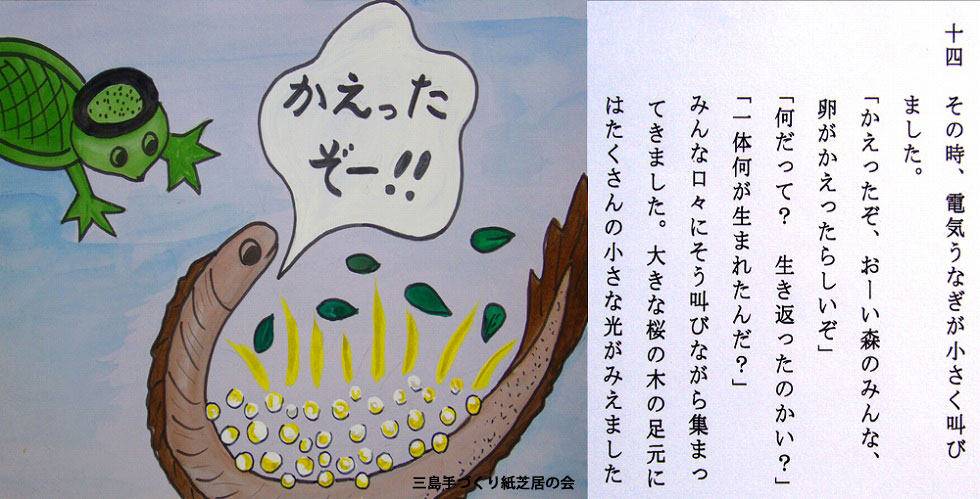 かえった
ぞー!!
三島手づくり紙芝居の会
十四　その時、電気うなぎが小さく叫び
ました。
「かえったぞ、おーい森のみんな、
卵がかえったらしいぞ」
「何だって？　生き返ったのかい？」
「一体何が生まれたんだ？」
みんな口々にそう叫びながら集まっ
てきました。大きな桜の木の足元に
はたくさんの小さな光がみえました